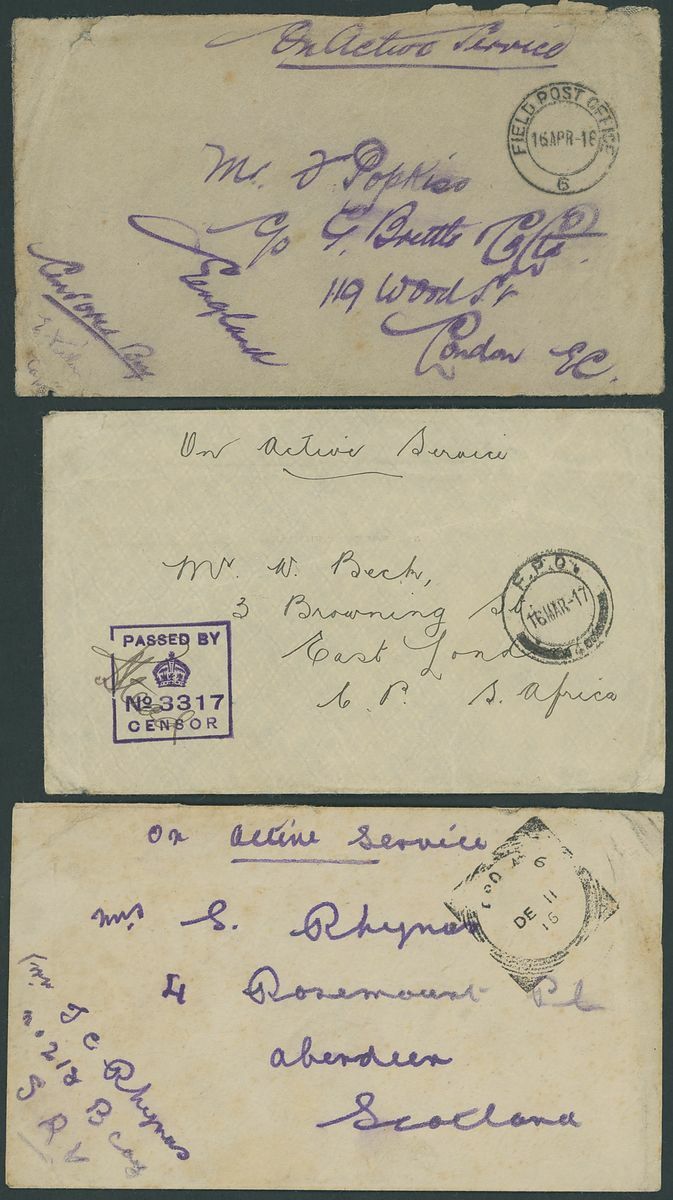 On Active Service
FIELD POST OFFICE
16 APR-16
6
Mr. J Popkiss
c/o G. Brettle & Co Ltd.
119 Wood St
London E.C.
England
Censored By
On Active Service
F.P.O.
16 MAR-17
Mr W. Beck,
3 Browning St.
East London
C. P. S. Africa
PASSED BY
No 3317
CENSOR
On Active Service
DE 11
16
Mrs G. Rhynas
4 Rosemount Pl
Aberdeen
Scotland
J C Rhynas
B Coy